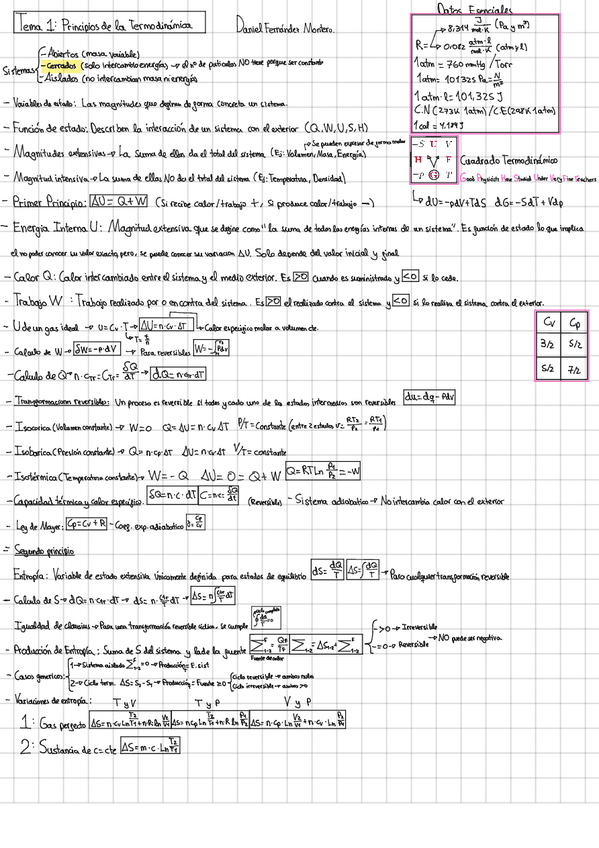 Datos Esenciales
Tema 1: Principios de la Termodinámica
Daniel Fernández Montero.
R= 8,314 J/mol·K (Pa y m³)
0,082 atm·l/mol·K (atm y l)
1atm = 760 mmHg / Torr
1atm = 101325 Pa = N/m²
1atm·l = 101,325 J
C.N (273K 1atm) / C.E (298K 1atm)
1 cal = 4,184 J
Sistemas
- Abiertos (masa variable)
- Cerrados (Solo intercambio energía) → el nº de partículas NO tiene porque ser constante
- Aislados (no intercambian masa ni energía)
- Variables de estado: Las magnitudes que definen de forma concreta un sistema.
- Función de estado: Describen la interacción de un sistema con el exterior (Q,W,U,S,H)
- Magnitudes extensivas → La suma de ellas da el total del sistema (Ej: Volumen, Masa, Energía)
→ Se pueden expresar de forma molar
- Magnitud intensiva → La suma de ellas NO da el total del sistema (Ej: Temperatura, Densidad)
-S U V
H F
-P G T
Cuadrado Termodinámico
Good Physicists Have Studied Under Very Fine Teachers
dU=-pdV+TdS dG=-SdT+Vdp
- Primer Principio: ΔU= Q+W (Si recibe calor/trabajo +, Si produce calor/trabajo -)
- Energía Interna U: Magnitud extensiva que se define como "la suma de todas las energías internas de un sistema". Es función de estado lo que implica
el no poder conocer su valor exacto, pero, se puede conocer su variación ΔU. Solo depende del valor inicial y final
- Calor Q: Calor intercambiado entre el sistema y el medio exterior. Es >0 cuando es suministrado y <0 si lo cede.
- Trabajo W: Trabajo realizado por o en contra del sistema. Es >0 el realizado contra el sistema y <0 si lo realiza el sistema contra el exterior.
- U de un gas ideal → U=Cv·T → ΔU=n·Cv·ΔT → Calor específico molar a volumen cte
Cv Cp
3/2 5/2
5/2 7/2
- Calculo de W → δW=-P·dV → Para reversibles
- Calculo de Q → dQ=n·c·dT
- Transformaciones reversibles: Un proceso es reversible si todos y cada uno de los estados intermedios son reversibles du=dq-Pdv
- Isocorica (Volumen constante) → W=0 Q=ΔU=n·Cv ΔT P/T=Constante (entre 2 estados V= RT2/P2 = RT1/P1)
- Isobarica (Presión constante) → Q=n·Cp·ΔT ΔU=n·Cv·ΔT V/T=constante
- Isotérmica (Temperatura constante) → W=-Q ΔU=0=Q+W Q=RTLn P1/P2 =-W
- Capacidad térmica y calor específico. δQ=n·c·dT (Reversibles) - Sistema adiabatico → No intercambia calor con el exterior
- Ley de Mayer: Cp=Cv+R - Coef. exp. adiabatico γ= Cp/Cv
= Segundo principio
Entropía: Variable de estado extensiva, únicamente definida para estados de equilibrio dS= dQ/T ΔS=∫dQ/T → Para cualquier transformación reversible
- Calculo de S → dQ=n·c·dT → ΔS=n∫
Igualdad de clausius → Para una transformación reversible ciclica. Se cumple
- Producción de Entropía: Suma de S del sistema y la de la fuente
Fuente de calor
->0 → Irreversible
-=0 → Reversible
→ NO puede ser negativa.
- Casos genericos:
1→ Sistema aislado =0 → Producción= E. sist
2→ Ciclo term. → Producción= Fuente ≥0
Ciclo reversible → ambos nulos
Ciclo irreversible → ambos >0
- Variaciones de entropía: T y V T y P V y P
1: Gas perfecto ΔS=n·Cv Ln T2/T1 +n·R·Ln V2/V1 ΔS=n·Cp Ln T2/T1 +n R Ln P1/P2 ΔS=n·Cp·Ln V2/V1 +n·Cv·Ln P2/P1
2: Sustancia de c=cte ΔS=m·c·Ln T2/T1